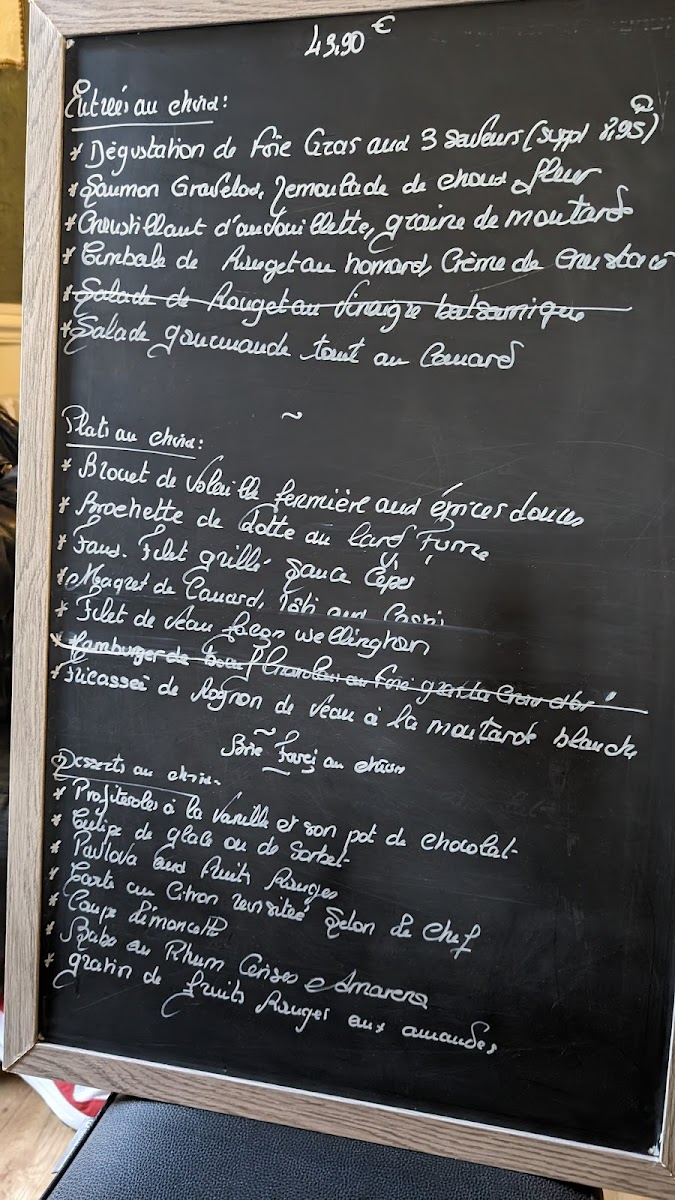 49,90 €
Entrées au choix:
* Dégustation de Foie Gras aux 3 saveurs (suppl 8,95)
* Saumon Gravelax, remoulade de choux fleur
* Croustillant d'andouillette, graine de moutarde
* Timbale de Rouget au homard, Crème de Crustacé
* Salade de Rouget au vinaigre balsamique
* Salade gourmande tout au Canard
~
Plats au choix:
* Brouet de Volaille fermière aux épices douces
* Brochette de Lotte au lard Fumé
* Faux-Filet grillé sauce Cèpes
* Magret de Canard, rôti aux
* Filet de veau façon Wellington
* Hamburger de boeuf Charolais au Foie gras
* Fricassée de Rognon de veau à la moutarde blanche
~
Brie Farci au
~
Desserts au choix-
* Profiteroles à la vanille et son pot de chocolat-
* Tulipe de glace ou de Sorbet-
* Pavlova aux fruits Rouges
* Tarte au Citron revisitée selon le chef
* Coupe Limoncello
* Baba au Rhum Cerises Amarena
* gratin de fruits Rouges aux amandes